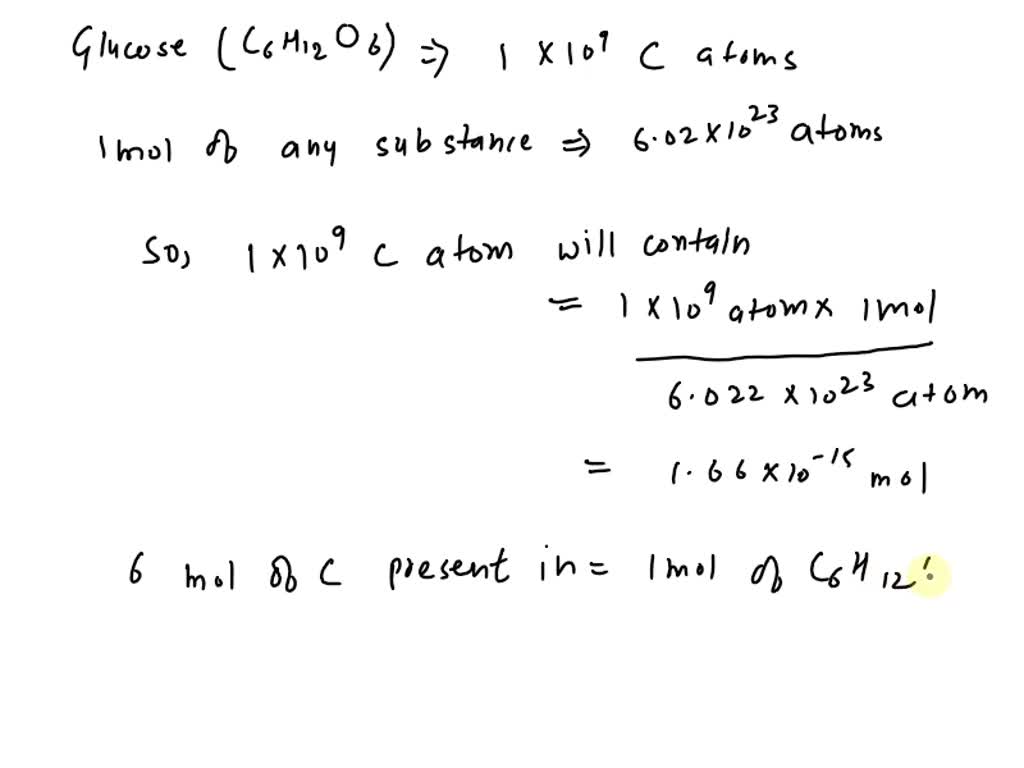 Glucose (C6H12O6) ⇒ 1 × 10⁹ C atoms
1mol of any substance ⇒ 6.02×10²³ atoms
So, 1×10⁹ C atom will contain
= 1×10⁹ atom× 1mol
6.022 ×10²³ atom
= 1.66×10⁻¹⁵ mol
6 mol of C present in = 1mol of C6H12